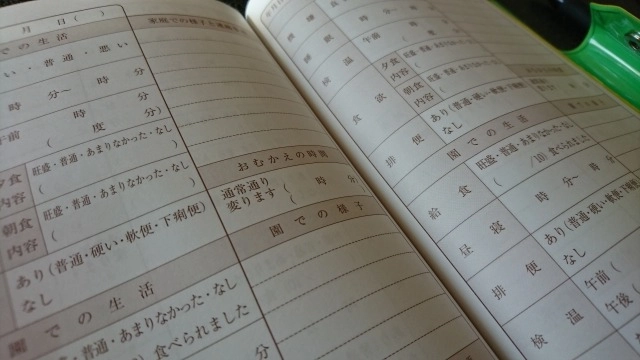 月 日( )
での生活
い・普通・悪い
時 分～ 時 分
午前 時 分
( 度 分)
夕食
内容
旺盛・普通・あまりなかった・なし
( )
朝食
内容
旺盛・普通・あまりなかった・なし
( )
あり(普通・硬い・軟便・下痢便)
なし
園での生活
・普通・あまりなかった・なし
)食べられました
分
おむかえの時間
通常通り
変ります
( 時 分)
園での様子
検温
食欲
排便
時 分
午前 時
夕食
内容
朝食
内容
あり(普通・硬い・軟便・下痢便)
なし
園での生活
給食
旺盛・普通・あまりなかった・なし
( /10)食べられました
昼寝
時 分～ 時
排便
あり(普通・硬い・軟便・下
なし
検温
午前(
午後(